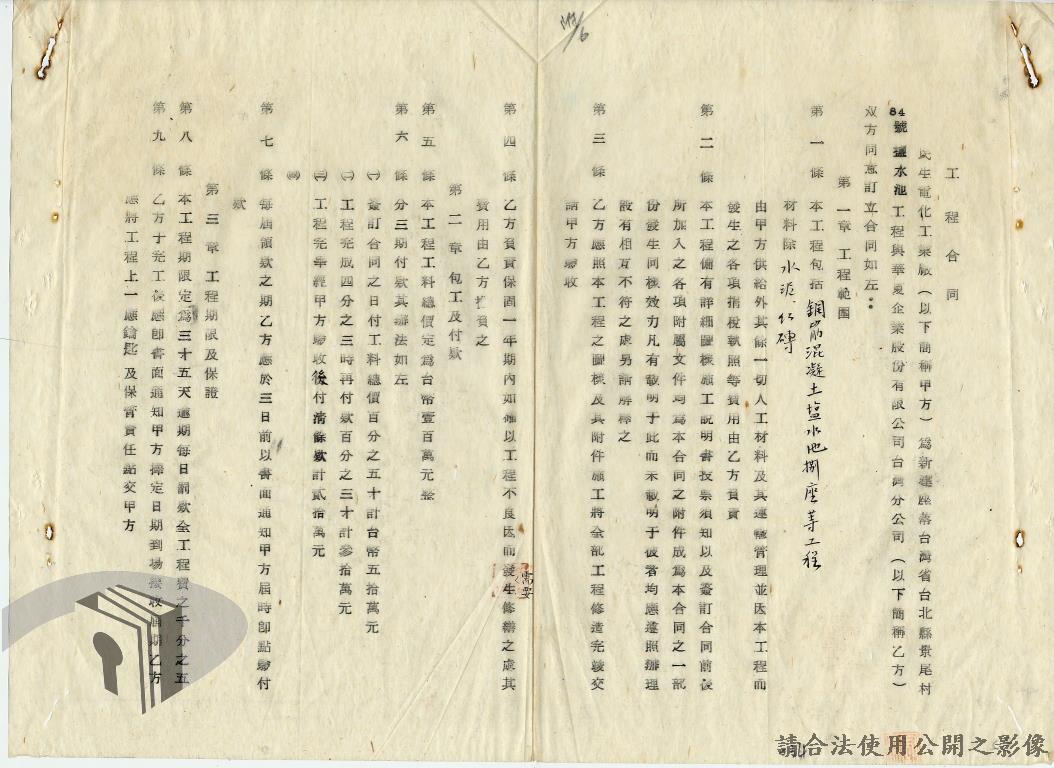 附6
工程合同
民生電化工業廠（以下簡稱甲方）爲新建座落台灣省台北縣景尾村
84號鹽水池工程與華夏企業股份有限公司台灣分公司（以下簡稱乙方）
双方同意訂立合同如左：
第一章 工程範圍
第一條 本工程包括鋼筋混凝土塩水池捌座等工程
材料除水泥、红磚
由甲方供給外其餘一切人工材料及其運輸管理並因本工程而
發生之各項捐稅執照等費用由乙方負責
第二條 本工程備有詳細圖樣施工說明書投票須知以及簽訂合同前後
所加入之各項附屬文件均爲本合同之附件成爲本合同之一部
份發生同樣效力凡有載明于此而未載明于彼者均應遵照辦理
設有相互不符之處另請解釋之
第三條 乙方應照本工程之圖樣及其附件施工將全部工程修造完竣交
請甲方驗收
第四條 乙方負責保固一年期內如確以工程不良因而發生修繕之處其
需要
費用由乙方擔負之
第二章 包工及付欵
第五條 本工程工料總價定爲台幣壹百萬元整
第六條 分三期付欵其辦法如左
㈠ 簽訂合同之日付工料總價百分之五十計台幣五拾萬元
㈡ 工程完成四分之三時再付欵百分之三十計參拾萬元
㈢ 工程完畢經甲方驗收後付清餘欵計貳拾萬元
㈣
第七條 每屆領欵之期乙方應於三日前以書面通知甲方屆時卽點驗付
欵
第三章 工程期限及保證
第八條 本工程期限定爲三十五天逾期每日罰欵全工程費之千分之五
第九條 乙方于完工後應卽書面通知甲方擇定日期到場接收屆期乙方
應將工程上一應鑰匙及保管責任點交甲方
請合法使用公開之影像